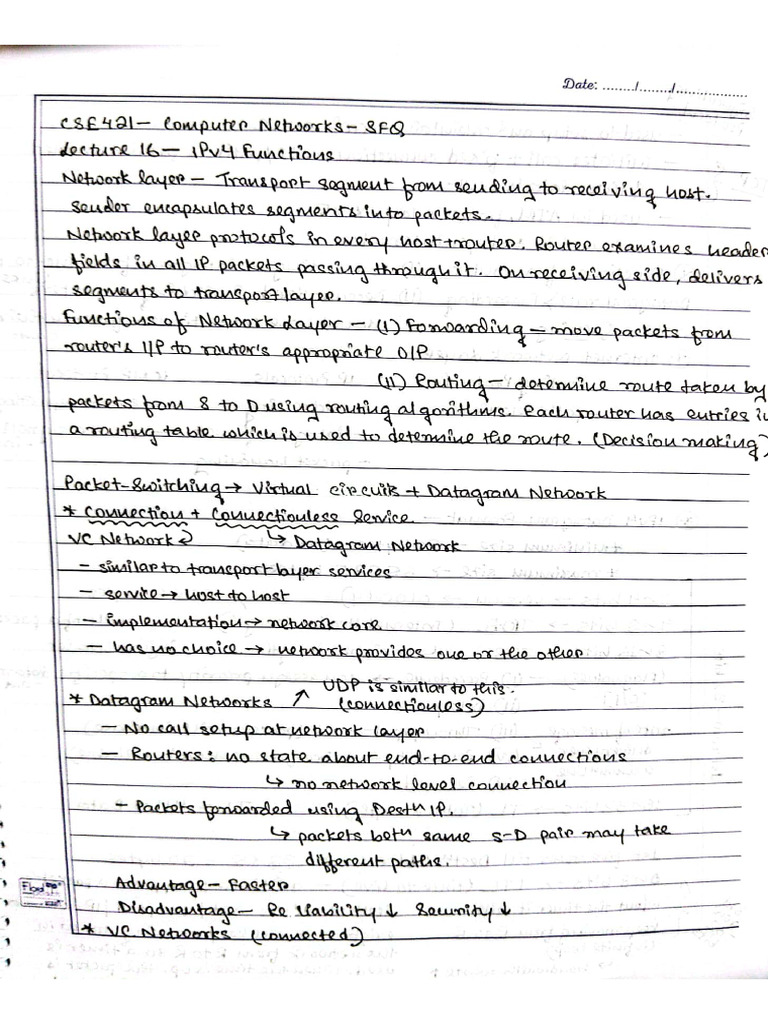 Date: ......../......../..................
CSE421- Computer Networks- SFQ
Lecture 16- IPv4 Functions
Network layer - Transport segment from sending to receiving host.
Sender encapsulates segments into packets.
Network layer protocols in every host + router. Router examines header
fields in all IP packets passing through it. On receiving side, delivers
segments to transport layer.
Functions of Network Layer - (I) Forwarding - move packets from
router's I/P to router's appropriate O/P
(II) Routing - determine route taken by
packets from S to D using routing algorithms. Each router has entries in
a routing table which is used to determine the route. (Decision making)
Packet-Switching → Virtual circuits + Datagram Network
* Connection + Connectionless Service
VC Network ↳ Datagram Network
- similar to transport layer services
- service → host to host
- implementation → network core
- has no choice → network provides one or the other
* Datagram Networks ↗ UDP is similar to this.
(connectionless)
- No call setup at network layer
- Routers: no state about end-to-end connections
↳ no network level connection
- Packets forwarded using Destⁿ IP.
↳ packets betⁿ same S-D pair may take
different paths.
Advantage - Faster
Disadvantage - Reliability ↓ Security ↓
* VC Networks (connected)